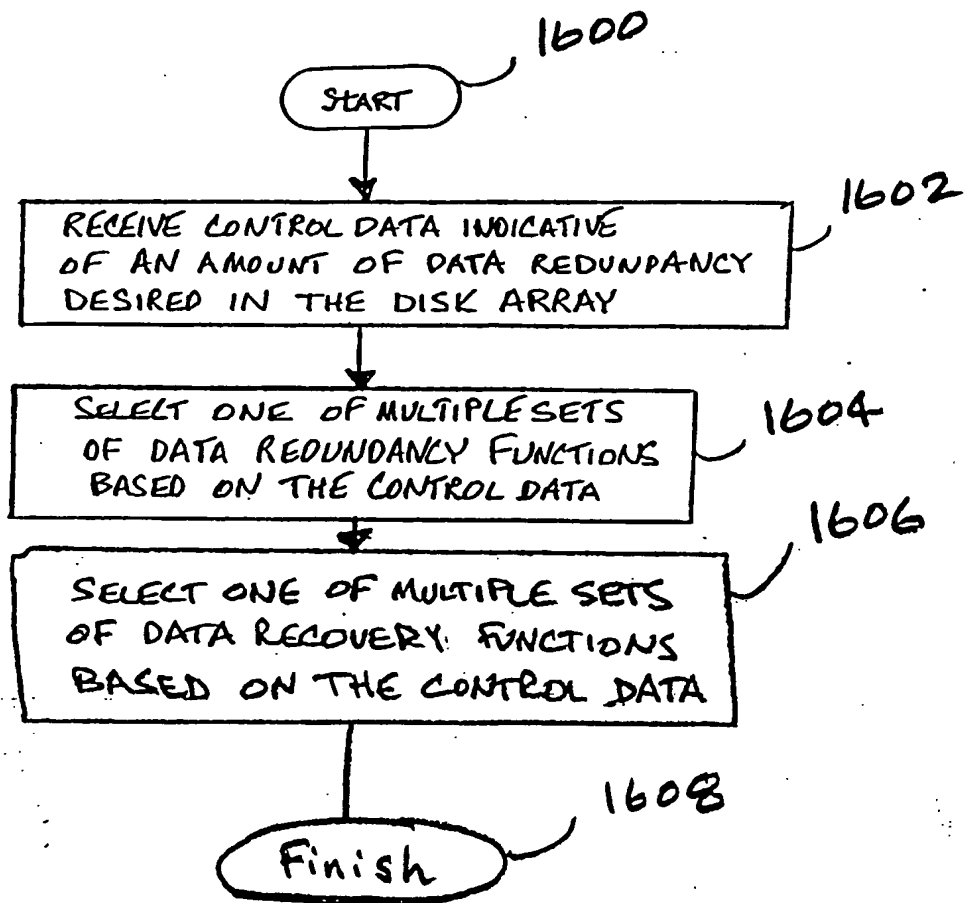 1600
START
1602
RECEIVE CONTROL DATA INDICATIVE
OF AN AMOUNT OF DATA REDUNDANCY
DESIRED IN THE DISK ARRAY
1604
SELECT ONE OF MULTIPLE SETS
OF DATA REDUNDANCY FUNCTIONS
BASED ON THE CONTROL DATA
1606
SELECT ONE OF MULTIPLE SETS
OF DATA RECOVERY FUNCTIONS
BASED ON THE CONTROL DATA
1608
Finish